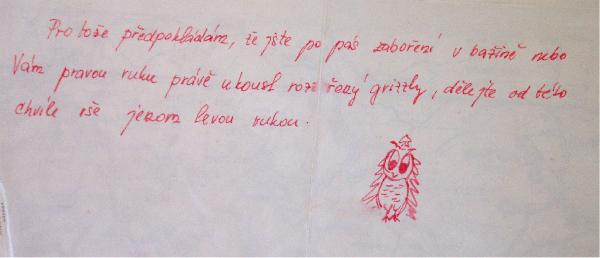 Protože předpokládám, že jste po pás zabořeni v bažině nebo
Vám pravou ruku právě ukousl rozzuřený grizzly, dělejte od této
chvíle vše jenom levou rukou.